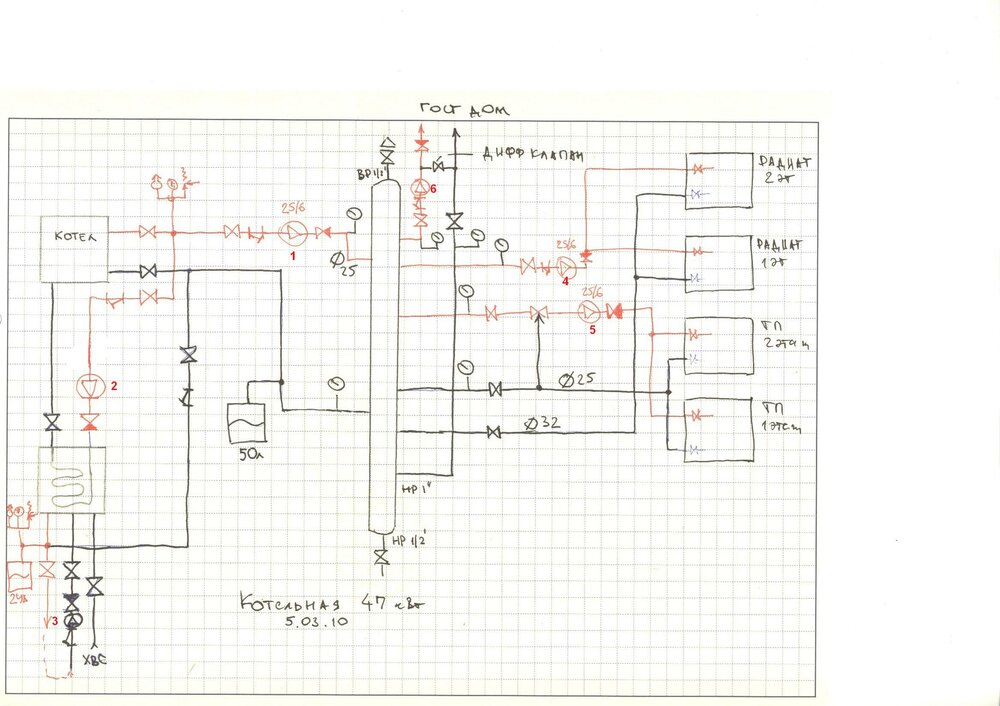 ГОСТ ДОМ
ДИФФ КЛАПАН
ВР 1/2"
РАДИАТ
2 эт
6
25/6
КОТЕЛ
1
Ø
25
25/6
4
РАДИАТ
1 эт
25/6
5
ТП
2 этаж
2
Ø25
Ø32
ТП
1 этаж
50л
НР 1"
НР 1/2"
24л
Котельная 47 кВт
5.03.10
3
ХВС